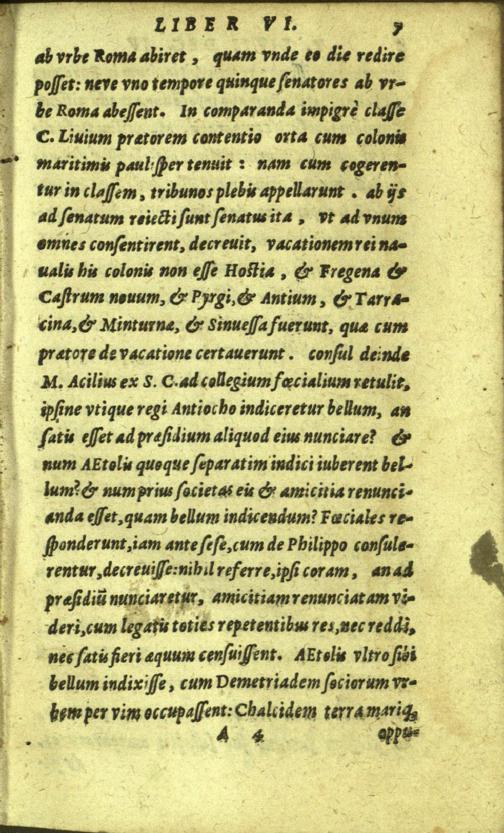 LIBER VI. 7
ab vrbe Roma abiret, quam vnde eo die redire
posset: neve vno tempore quinque senatores ab vr-
be Roma abessent. In comparanda impigrè classe
C. Liuium prætorem contentio orta cum colonis
maritimis paulisper tenuit: nam cum cogeren-
tur in classem, tribunos plebis appellarunt. ab ijs
ad senatum reiecti sunt senatus ita, vt ad vnum
omnes consentirent, decreuit, vacationem rei na-
ualis his colonis non esse Hostia, & Fregena &
Castrum nouum, & Pyrgi, & Antium, & Tarra-
cina, & Minturnæ, & Sinuessa fuerunt, quæ cum
prætore de vacatione certauerunt. consul deinde
M. Acilius ex S. C. ad collegium fœcialium retulit,
ipsine vtique regi Antiocho indiceretur bellum, an
satis esset ad præsidium aliquod eius nunciare? &
num AEtolis quoque separatim indici iuberent bel-
lum? & num prius societas eis & amicitia renunci-
anda esset, quam bellum indicendum? Fœciales re-
sponderunt, iam ante sese, cum de Philippo consule-
rentur, decreuisse: nihil referre, ipsi coram, an ad
præsidiũ nunciaretur, amicitiam renunciatam vi-
deri, cum legatis toties repetentibus res, nec reddi,
nec satis fieri æquum censuissent. AEtolis vltro sibi
bellum indixisse, cum Demetriadem sociorum vr-
bem per vim occupassent: Chalcidem terra mariq;
A 4 oppu-